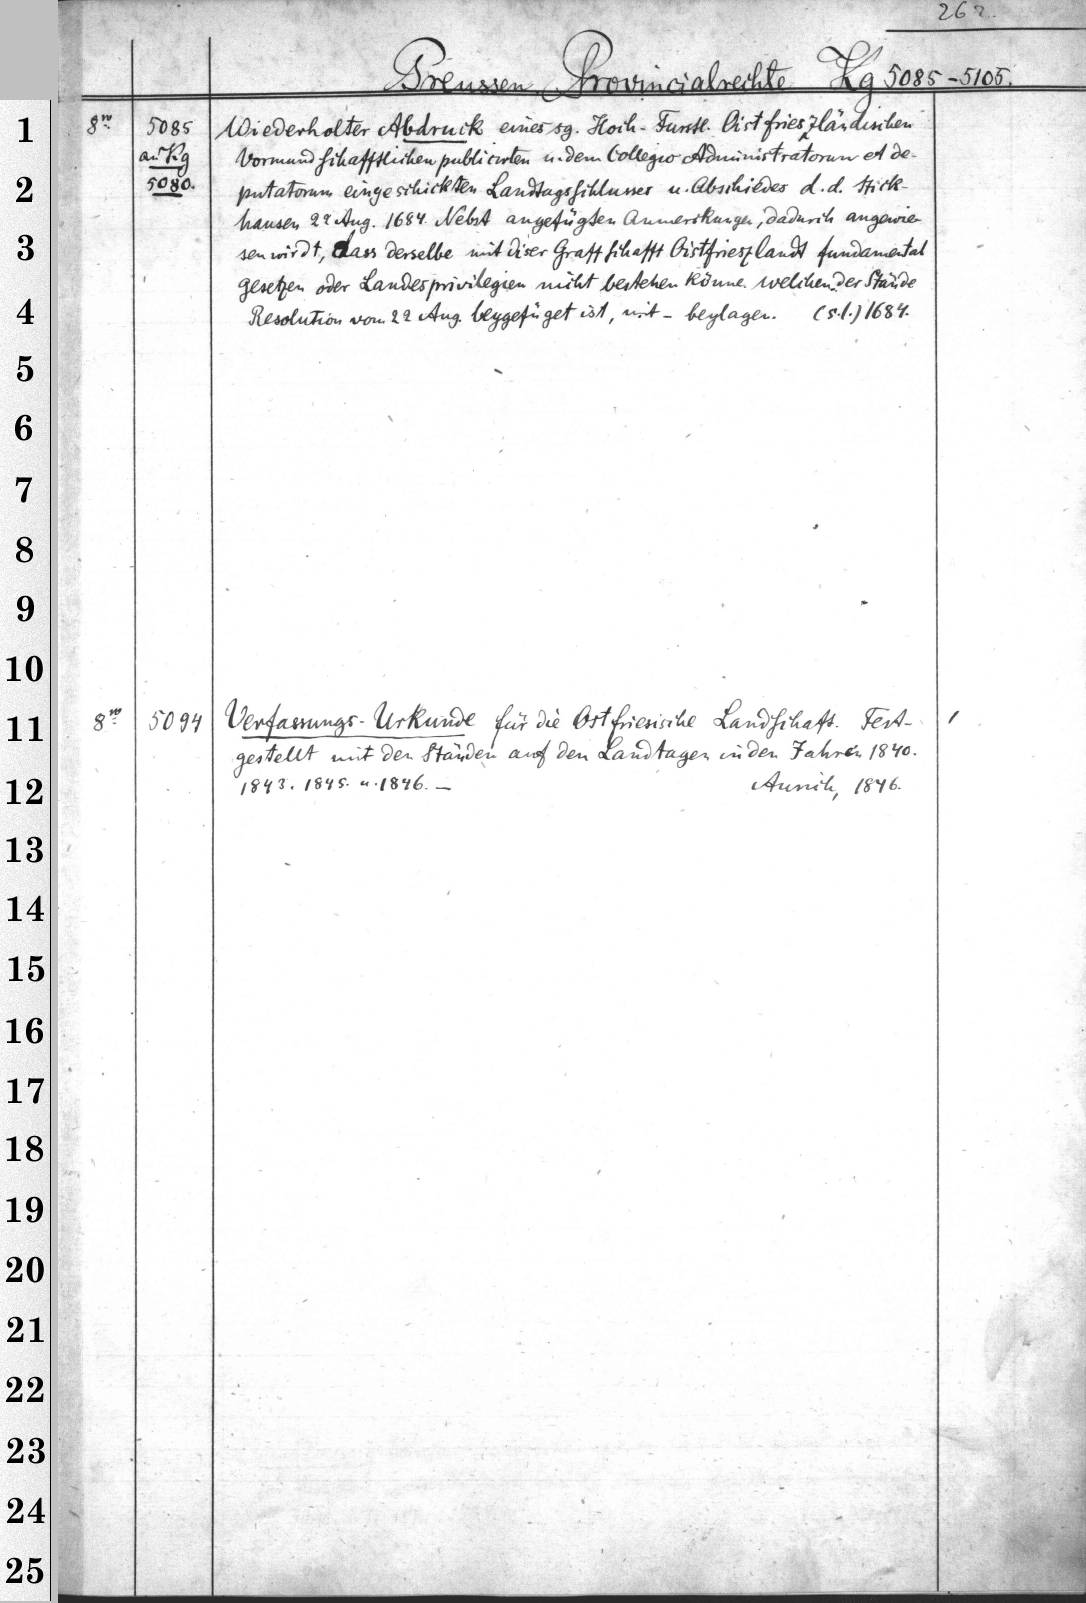 262.
Preussen, Provincialrechte Kg 5085-5105.
8vo 5085 Wiederholter Abdruck eines sg. Hoch-Furstl. Oistfrieszländischen
an Kg Vormundschafftlichen publicirten u. dem Collegio Administratorum et de-
5080. putatorum eingeschickten Landtagsschlusses u. Abschiedes d.d. Stick-
hausen 22 Aug. 1684. Nebst angefügten Anmerckungen, dadurch angewie-
sen wirdt, dass derselbe mit diser Graffschafft Oistfrieszlandt fundamental
gesetzen oder Landesprivilegien nicht bestehen könne. welchen der Stände
Resolution vom 22 Aug. beygefüget ist, mit - beylagen. (s.l.) 1684.
8vo 5094 Verfassungs-Urkunde für die Ostfriesische Landschaft. Fest-
gestellt mit den Ständen auf den Landtagen in den Jahren 1840.
1843. 1845. u. 1846. — Aurich, 1846.
1
2
3
4
5
6
7
8
9
10
11
12
13
14
15
16
17
18
19
20
21
22
23
24
25